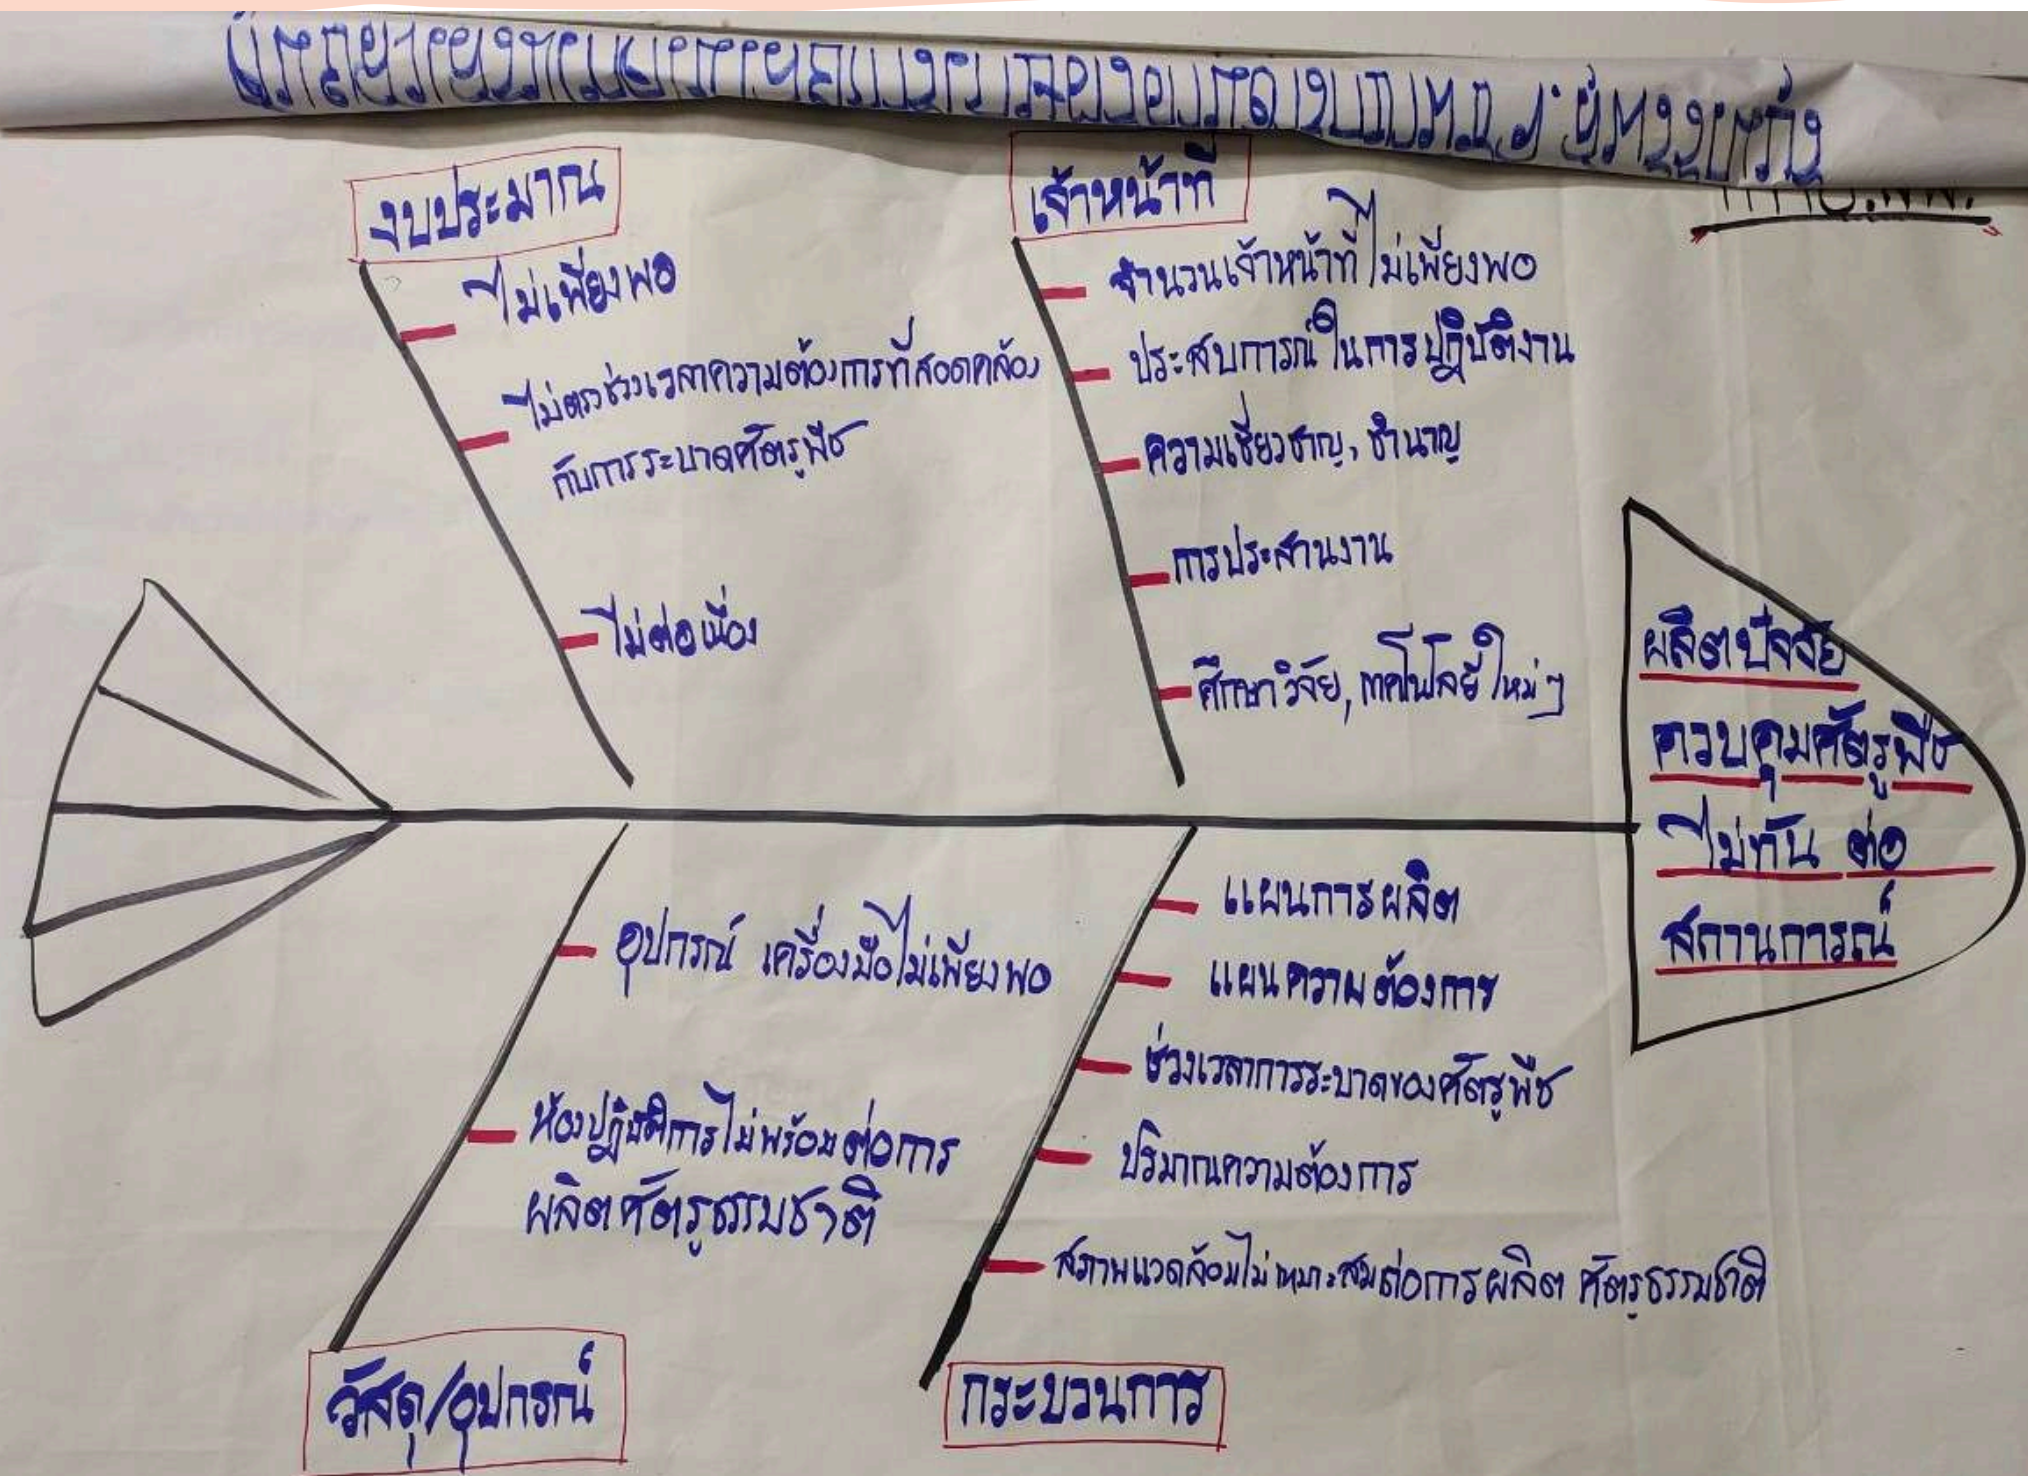 งบประมาณ
ไม่เพียงพอ
ไม่ตรงช่วงเวลาความต้องการที่สอดคล้อง
กับการระบาดศัตรูพืช
ไม่ต่อเนื่อง
เจ้าหน้าที่
จำนวนเจ้าหน้าที่ไม่เพียงพอ
ประสบการณ์ในการปฏิบัติงาน
ความเชี่ยวชาญ, ชำนาญ
การประสานงาน
ศึกษาวิจัย, เทคโนโลยีใหม่ๆ
ผลิตปัจจัย
ควบคุมศัตรูพืช
ไม่ทัน ต่อ
สถานการณ์
อุปกรณ์ เครื่องมือไม่เพียงพอ
ห้องปฏิบัติการไม่พร้อมต่อการ
ผลิตศัตรูธรรมชาติ
วัสดุ/อุปกรณ์
แผนการผลิต
แผนความต้องการ
ช่วงเวลาการระบาดของศัตรูพืช
ปริมาณความต้องการ
สภาพแวดล้อมไม่เหมาะสมต่อการผลิต ศัตรูธรรมชาติ
กระบวนการ